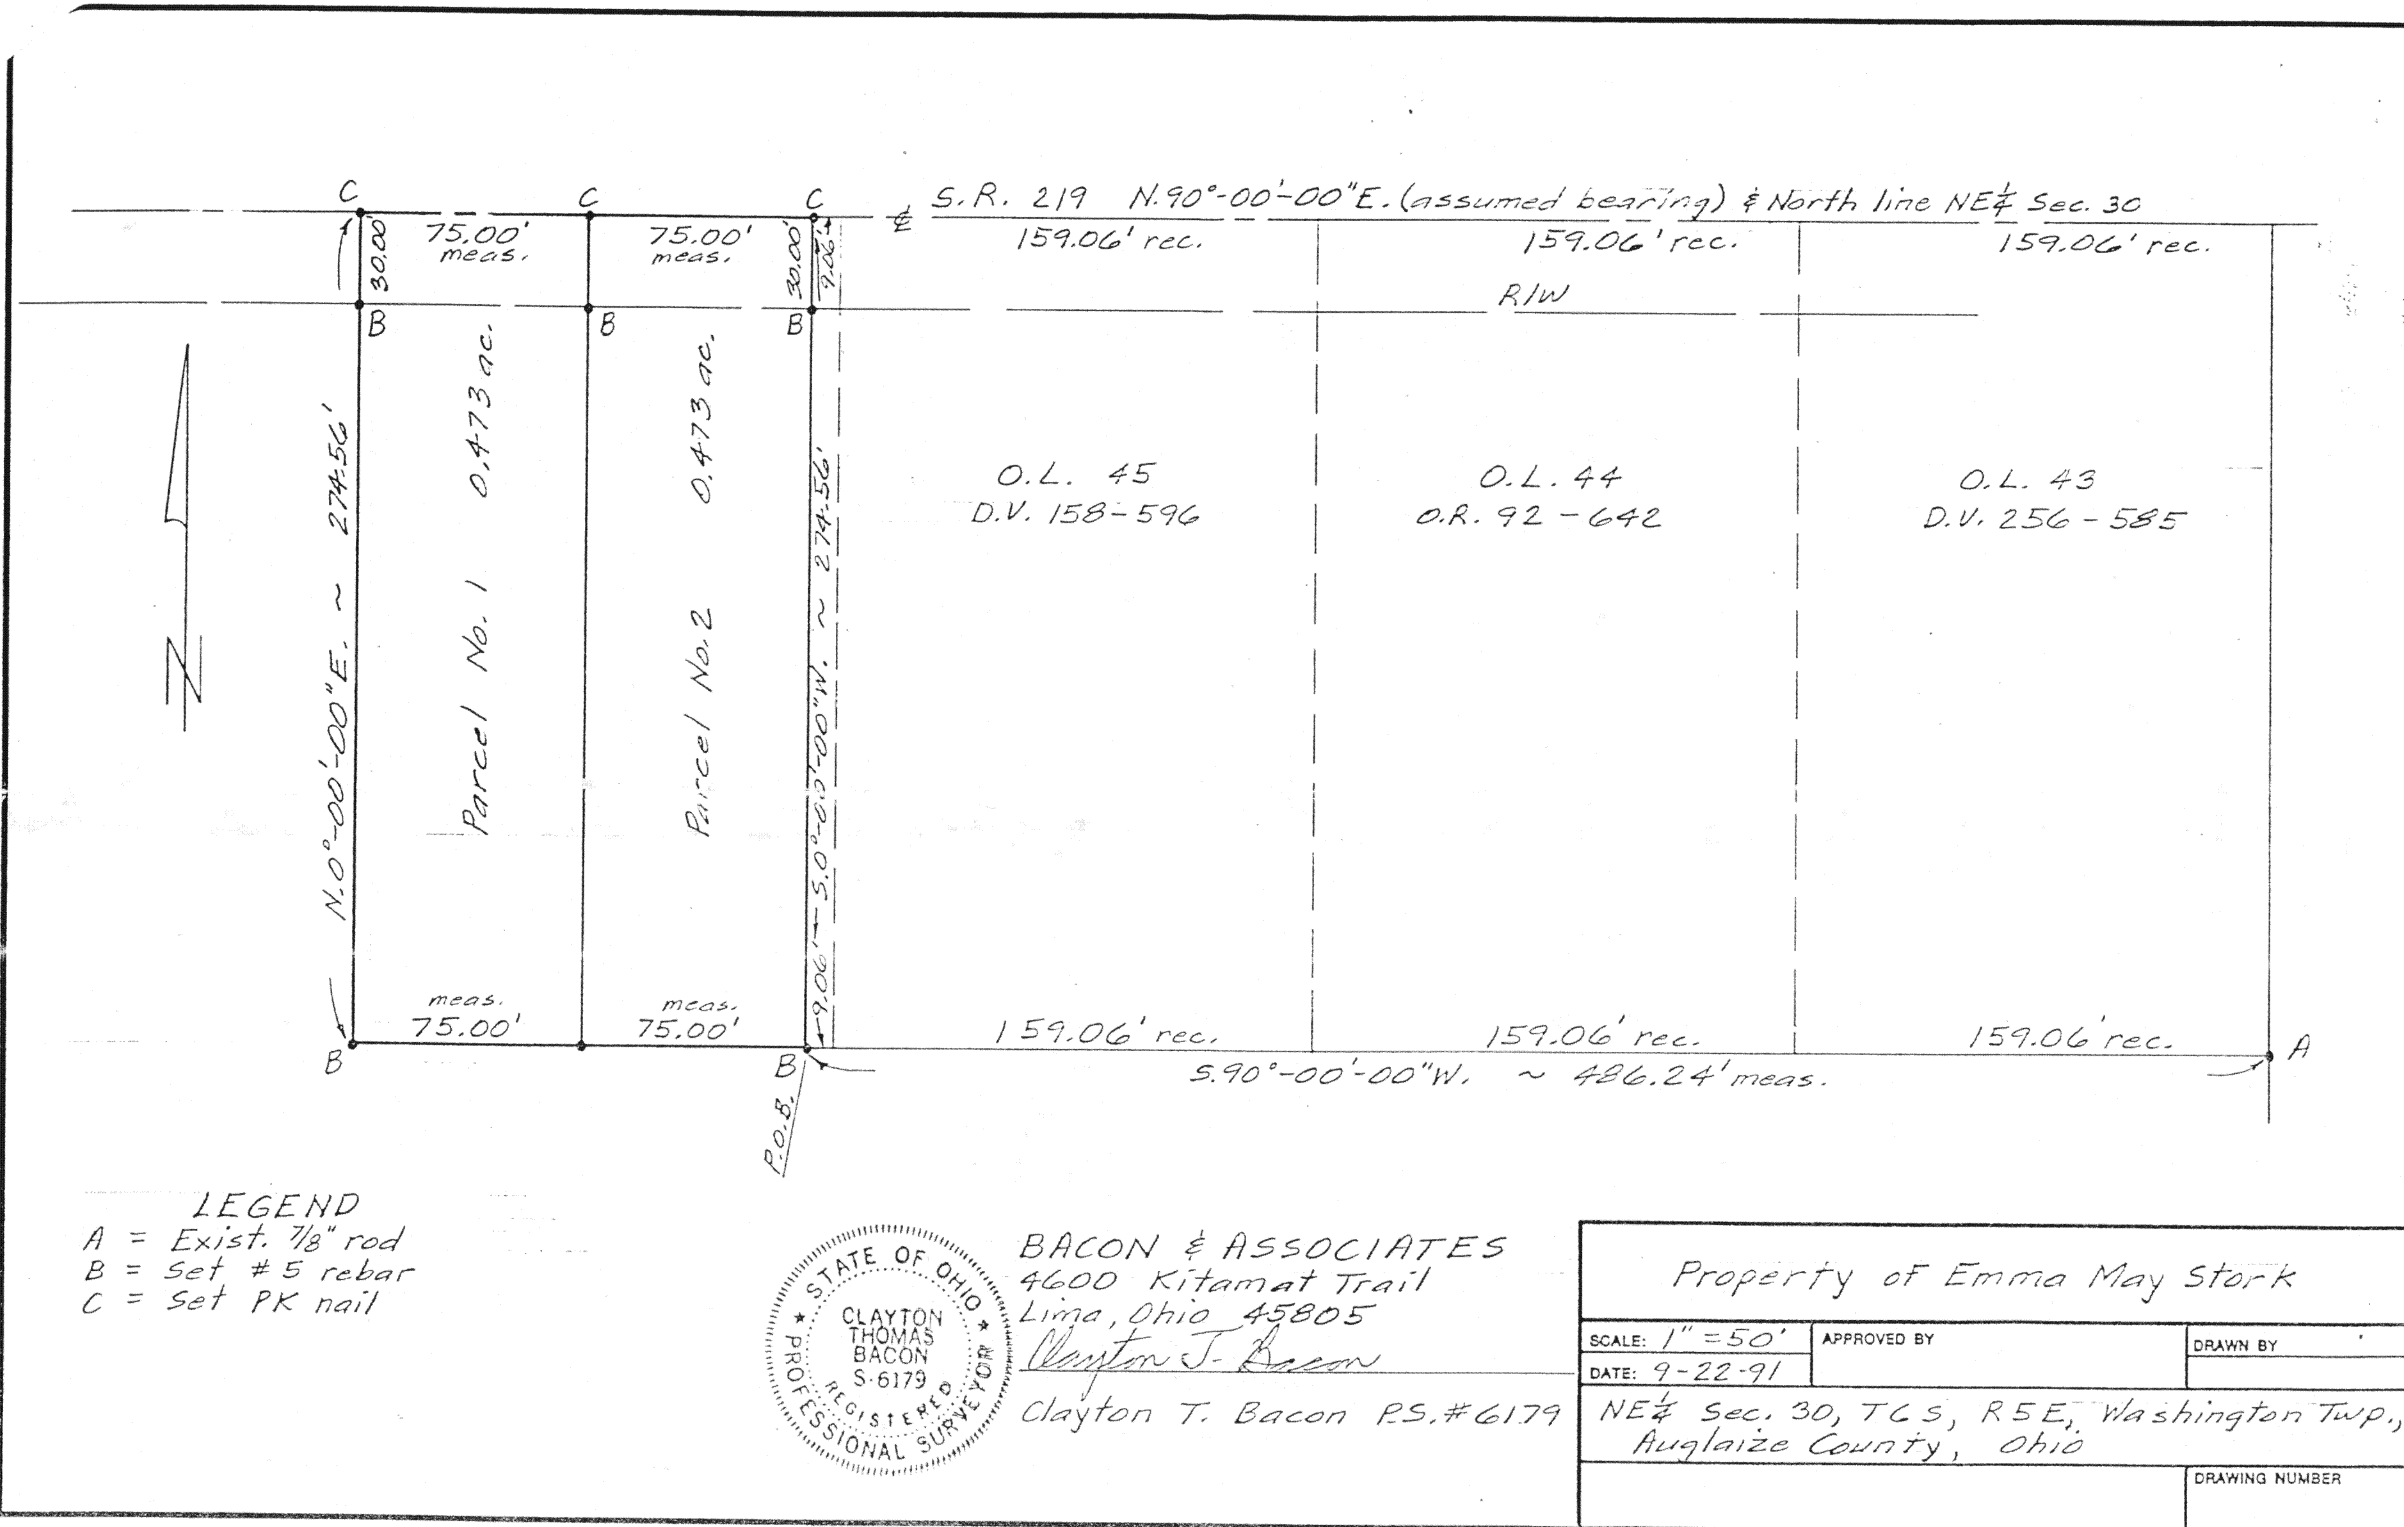 C
C
C
℄ S.R. 219 N.90°-00'-00"E. (assumed bearing) & North line NE¼ Sec. 30
75.00'
meas.
75.00'
meas.
30.00'
30.00'
9.06'
159.06' rec.
159.06' rec.
159.06' rec.
R/W
B
B
B
N.0°-00'-00"E. ~ 274.56'
Parcel No. 1 0.473 ac.
Parcel No. 2 0.473 ac.
S.0°-00'-00"W. ~ 274.56'
9.06'
O.L. 45
D.V. 158-596
O.L. 44
O.R. 92-642
O.L. 43
D.V. 256-585
N
meas.
75.00'
meas.
75.00'
159.06' rec.
159.06' rec.
159.06' rec.
A
B
B
S.90°-00'-00"W. ~ 486.24' meas.
P.O.B.
LEGEND
A = Exist. 7/8" rod
B = Set #5 rebar
C = Set PK nail
STATE OF OHIO
CLAYTON
THOMAS
BACON
S-6179
REGISTERED
PROFESSIONAL SURVEYOR
BACON & ASSOCIATES
4600 Kitamat Trail
Lima, Ohio 45805
Clayton T. Bacon
Clayton T. Bacon P.S.#6179
Property of Emma May Stork
SCALE: 1"=50'
APPROVED BY
DRAWN BY
DATE: 9-22-91
NE¼ Sec. 30, T6S, R5E, Washington Twp.,
Auglaize County, Ohio
DRAWING NUMBER